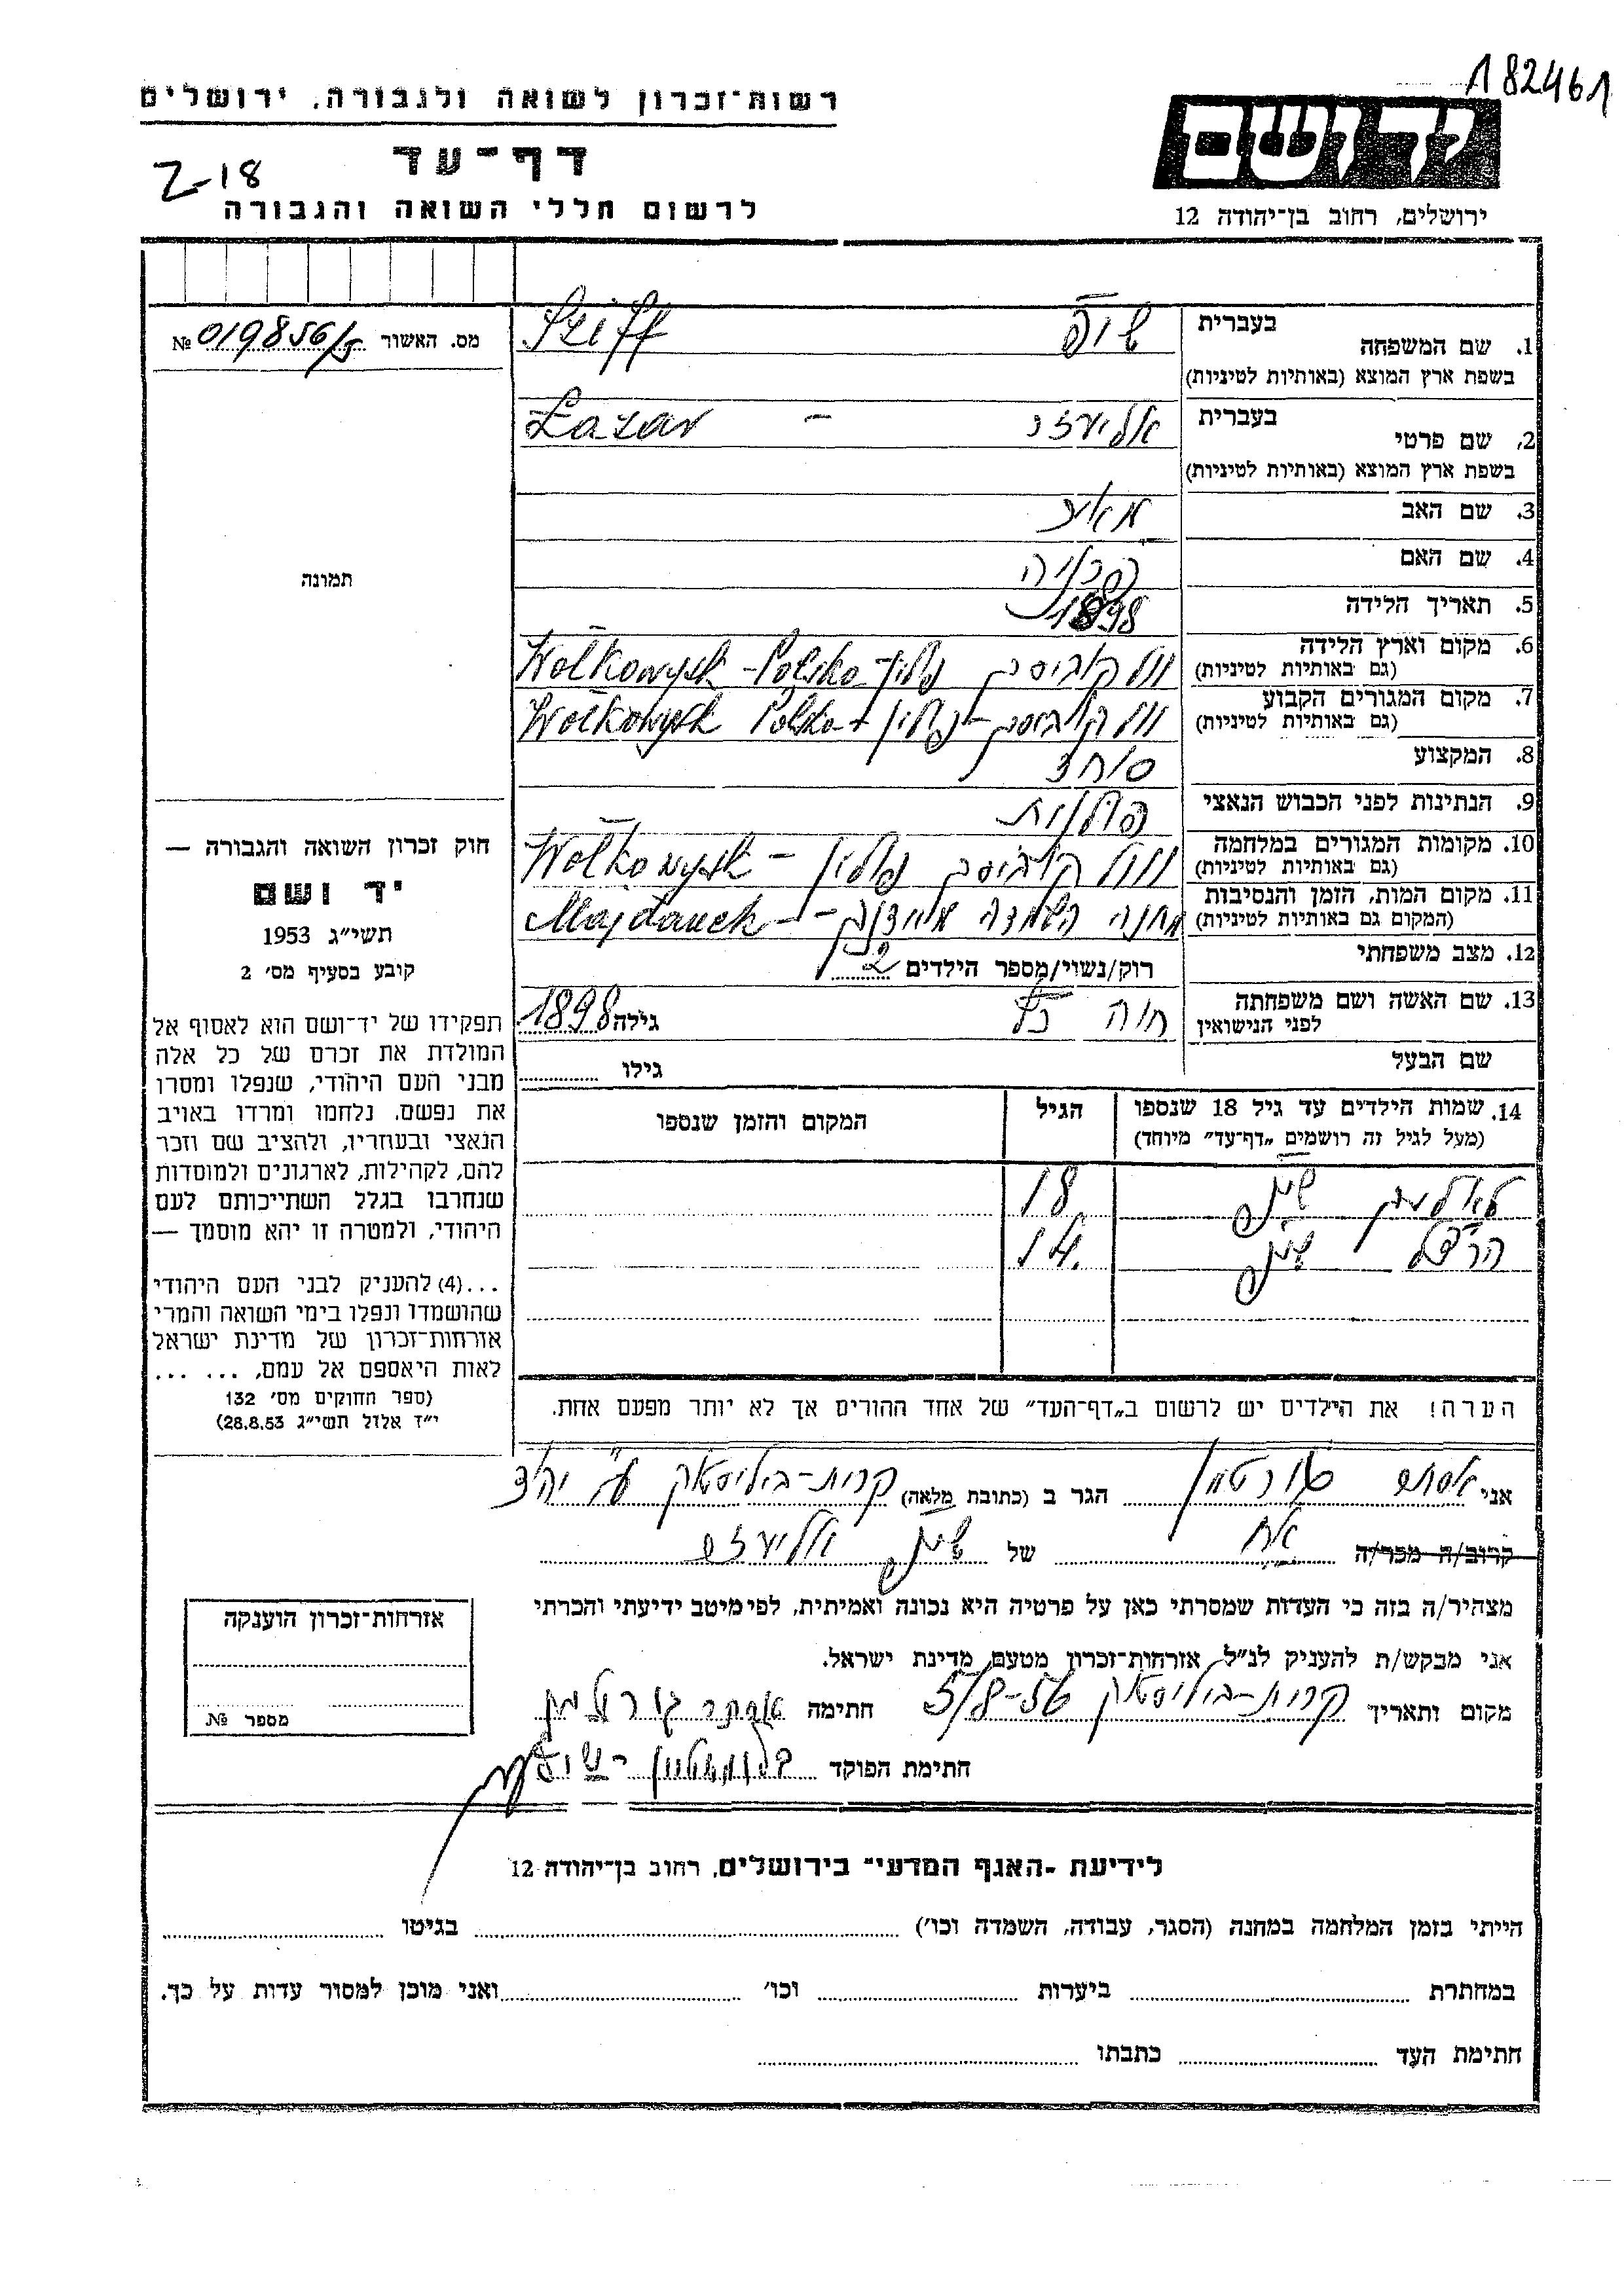 182461
רשות־זכרון לשואה ולגבורה, ירושלים
יד ושם
דף־עד
Z-18
לרשום חללי השואה והגבורה
ירושלים, רחוב בן־יהודה 12
מס. האשור № 019856/5
תמונה
בעברית
1. שם המשפחה
בשפת ארץ המוצא (באותיות לטיניות)
Szeiff
בעברית
2. שם פרטי
בשפת ארץ המוצא (באותיות לטיניות)
אליעזר - Lazar
3. שם האב מאיר
4. שם האם
5. תאריך הלידה 1898
6. מקום וארץ הלידה
(גם באותיות לטיניות)
וולקוביסק פולין - Wołkowysk - Polska
7. מקום המגורים הקבוע
(גם באותיות לטיניות)
וולקוביסק - פולין + Wołkowysk Polska
8. המקצוע סוחר
9. הנתינות לפני הכבוש הנאצי פולנית
10. מקומות המגורים במלחמה
(גם באותיות לטיניות)
וולקוביסק פולין - Wołkowysk
11. מקום המות, הזמן והנסיבות
(המקום גם באותיות לטיניות)
מחנה השמדה מיידנק - Majdanek
12. מצב משפחתי רוק/נשוי/מספר הילדים 2
13. שם האשה ושם משפחתה
לפני הנישואין
חיה כץ גילה 1898
שם הבעל גילו
14. שמות הילדים עד גיל 18 שנספו
(מעל לגיל זה רושמים „דף־עד" מיוחד)
הגיל
המקום והזמן שנספו
18
הרצל 14
הערה! את הילדים יש לרשום ב„דף־העד" של אחד ההורים אך לא יותר מפעם אחת.
חוק זכרון השואה והגבורה —
יד ושם
תשי"ג 1953
קובע בסעיף מס' 2
תפקידו של יד־ושם הוא לאסוף אל
המולדת את זכרם של כל אלה
מבני העם היהודי, שנפלו ומסרו
את נפשם, נלחמו ומרדו באויב
הנאצי ובעוזריו, ולהציב שם וזכר
להם, לקהילות, לארגונים ולמוסדות
שנחרבו בגלל השתייכותם לעם
היהודי, ולמטרה זו יהא מוסמך —
...(4) להעניק לבני העם היהודי
שהושמדו ונפלו בימי השואה והמרי
אזרחות־זכרון של מדינת ישראל
לאות היאספם אל עמם, ... ...
(ספר החוקים מס' 132
י"ד אלול תשי"ג 28.8.53)
אני אסתר גורטמן הגר ב (כתובת מלאה) קרית-ביליסטוק ע"י יהוד
קרוב/ה מכר/ה של אליעזר
מצהיר/ה בזה כי העדות שמסרתי כאן על פרטיה היא נכונה ואמיתית, לפי מיטב ידיעתי והכרתי
אני מבקש/ת להעניק לנ"ל אזרחות־זכרון מטעם מדינת ישראל.
מקום ותאריך קרית-ביליסטוק 5/8-56 חתימה אסתר גורטמן
חתימת הפוקד
אזרחות־זכרון הוענקה
מספר №
לידיעת „האגף המדעי" בירושלים, רחוב בן־יהודה 12
הייתי בזמן המלחמה במחנה (הסגר, עבודה, השמדה וכו') בגיטו
במחתרת ביערות וכו' ואני מוכן למסור עדות על כך.
חתימת העד כתבתו